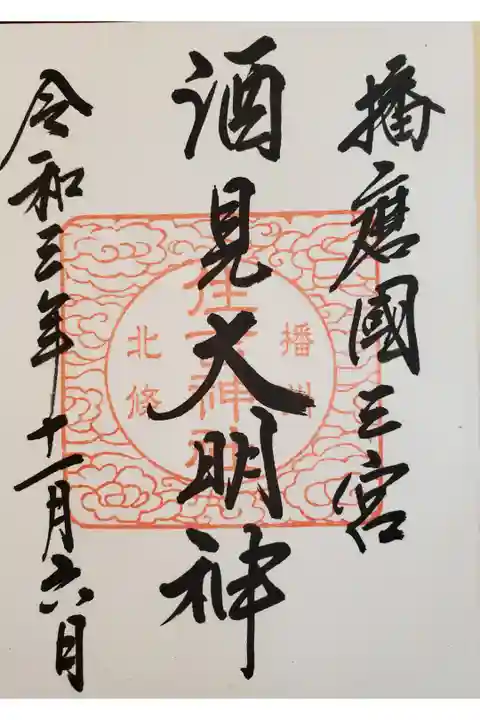 播磨國三宮
酒見大明神
令和三年十一月六日
播州
住吉神社
北條